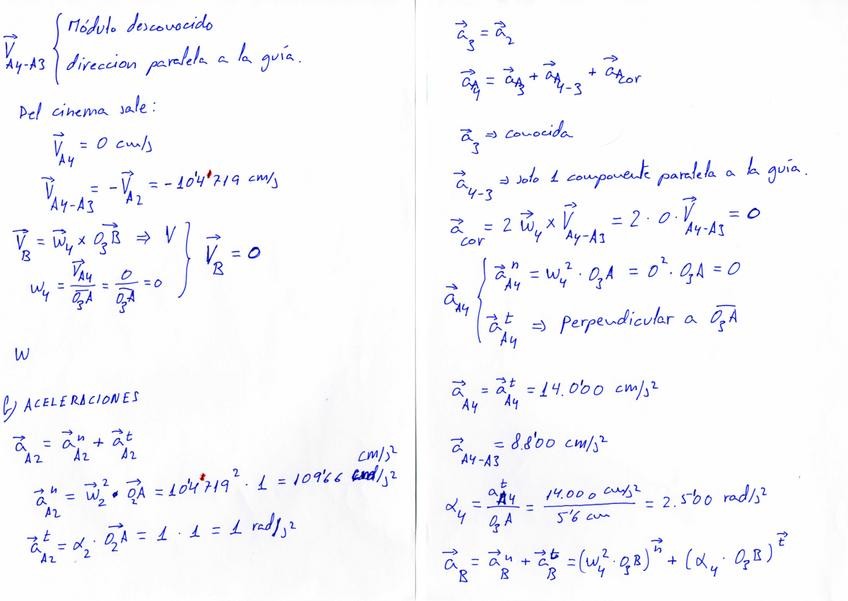 V⃗_A4-A3 { Módulo desconocido
dirección paralela a la guía.
Del cinema sale:
V⃗_A4 = 0 cm/s
V⃗_A4-A3 = -V⃗_A2 = -104'719 cm/s
V⃗_B = w⃗_4 x O_3B⃗ ⇒ V } V⃗_B = 0
w_4 = V⃗_A4 / O_3A⃗ = 0 / O_3A⃗ = 0
W
b) ACELERACIONES
a⃗_A2 = a⃗^n_A2 + a⃗^t_A2
a⃗^n_A2 = w⃗_2^2 · O_2A⃗ = 104'719^2 · 1 = 10966 cm/s^2
a⃗^t_A2 = α_2 · O_2A⃗ = 1 · 1 = 1 rad/s^2
a⃗_3 = a⃗_2
a⃗_A4 = a⃗_A3 + a⃗_A4-3 + a⃗_Acor
a⃗_3 ⇒ conocida
a⃗_4-3 ⇒ solo 1 componente paralela a la guía.
a⃗_cor = 2 w⃗_4 x V⃗_A4-A3 = 2 · 0 · V⃗_A4-A3 = 0
a⃗_A4 { a⃗^n_A4 = w_4^2 · O_3A = 0^2 · O_3A = 0
a⃗^t_A4 ⇒ Perpendicular a O_3A
a⃗_A4 = a⃗^t_A4 = 14.0'00 cm/s^2
a⃗_A4-A3 = 8.8'00 cm/s^2
α_4 = a^t_A4 / O_3A = 14.000 cm/s^2 / 5'6 cm = 2.5'00 rad/s^2
a⃗_B = a⃗^n_B + a⃗^t_B = (w_4^2 · O_3B)^n⃗ + (α_4 · O_3B)^t⃗